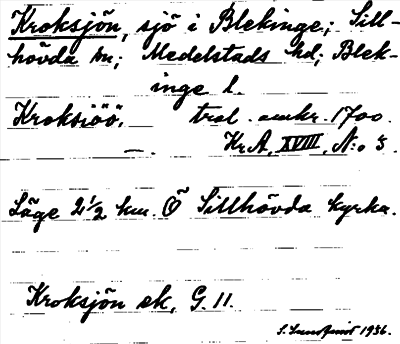 Kroksjön, sjö i Blekinge; Sill-
hövda sn; Medelstads hd; Blek-
inge l.
Kroksiöö, trol. omkr. 1700.
Kr.A, XVIII, N:o 3.
Läge 2 1/2 km. Ö Sillhövda kyrka.
Kroksjön ek, G. 11.
1936.